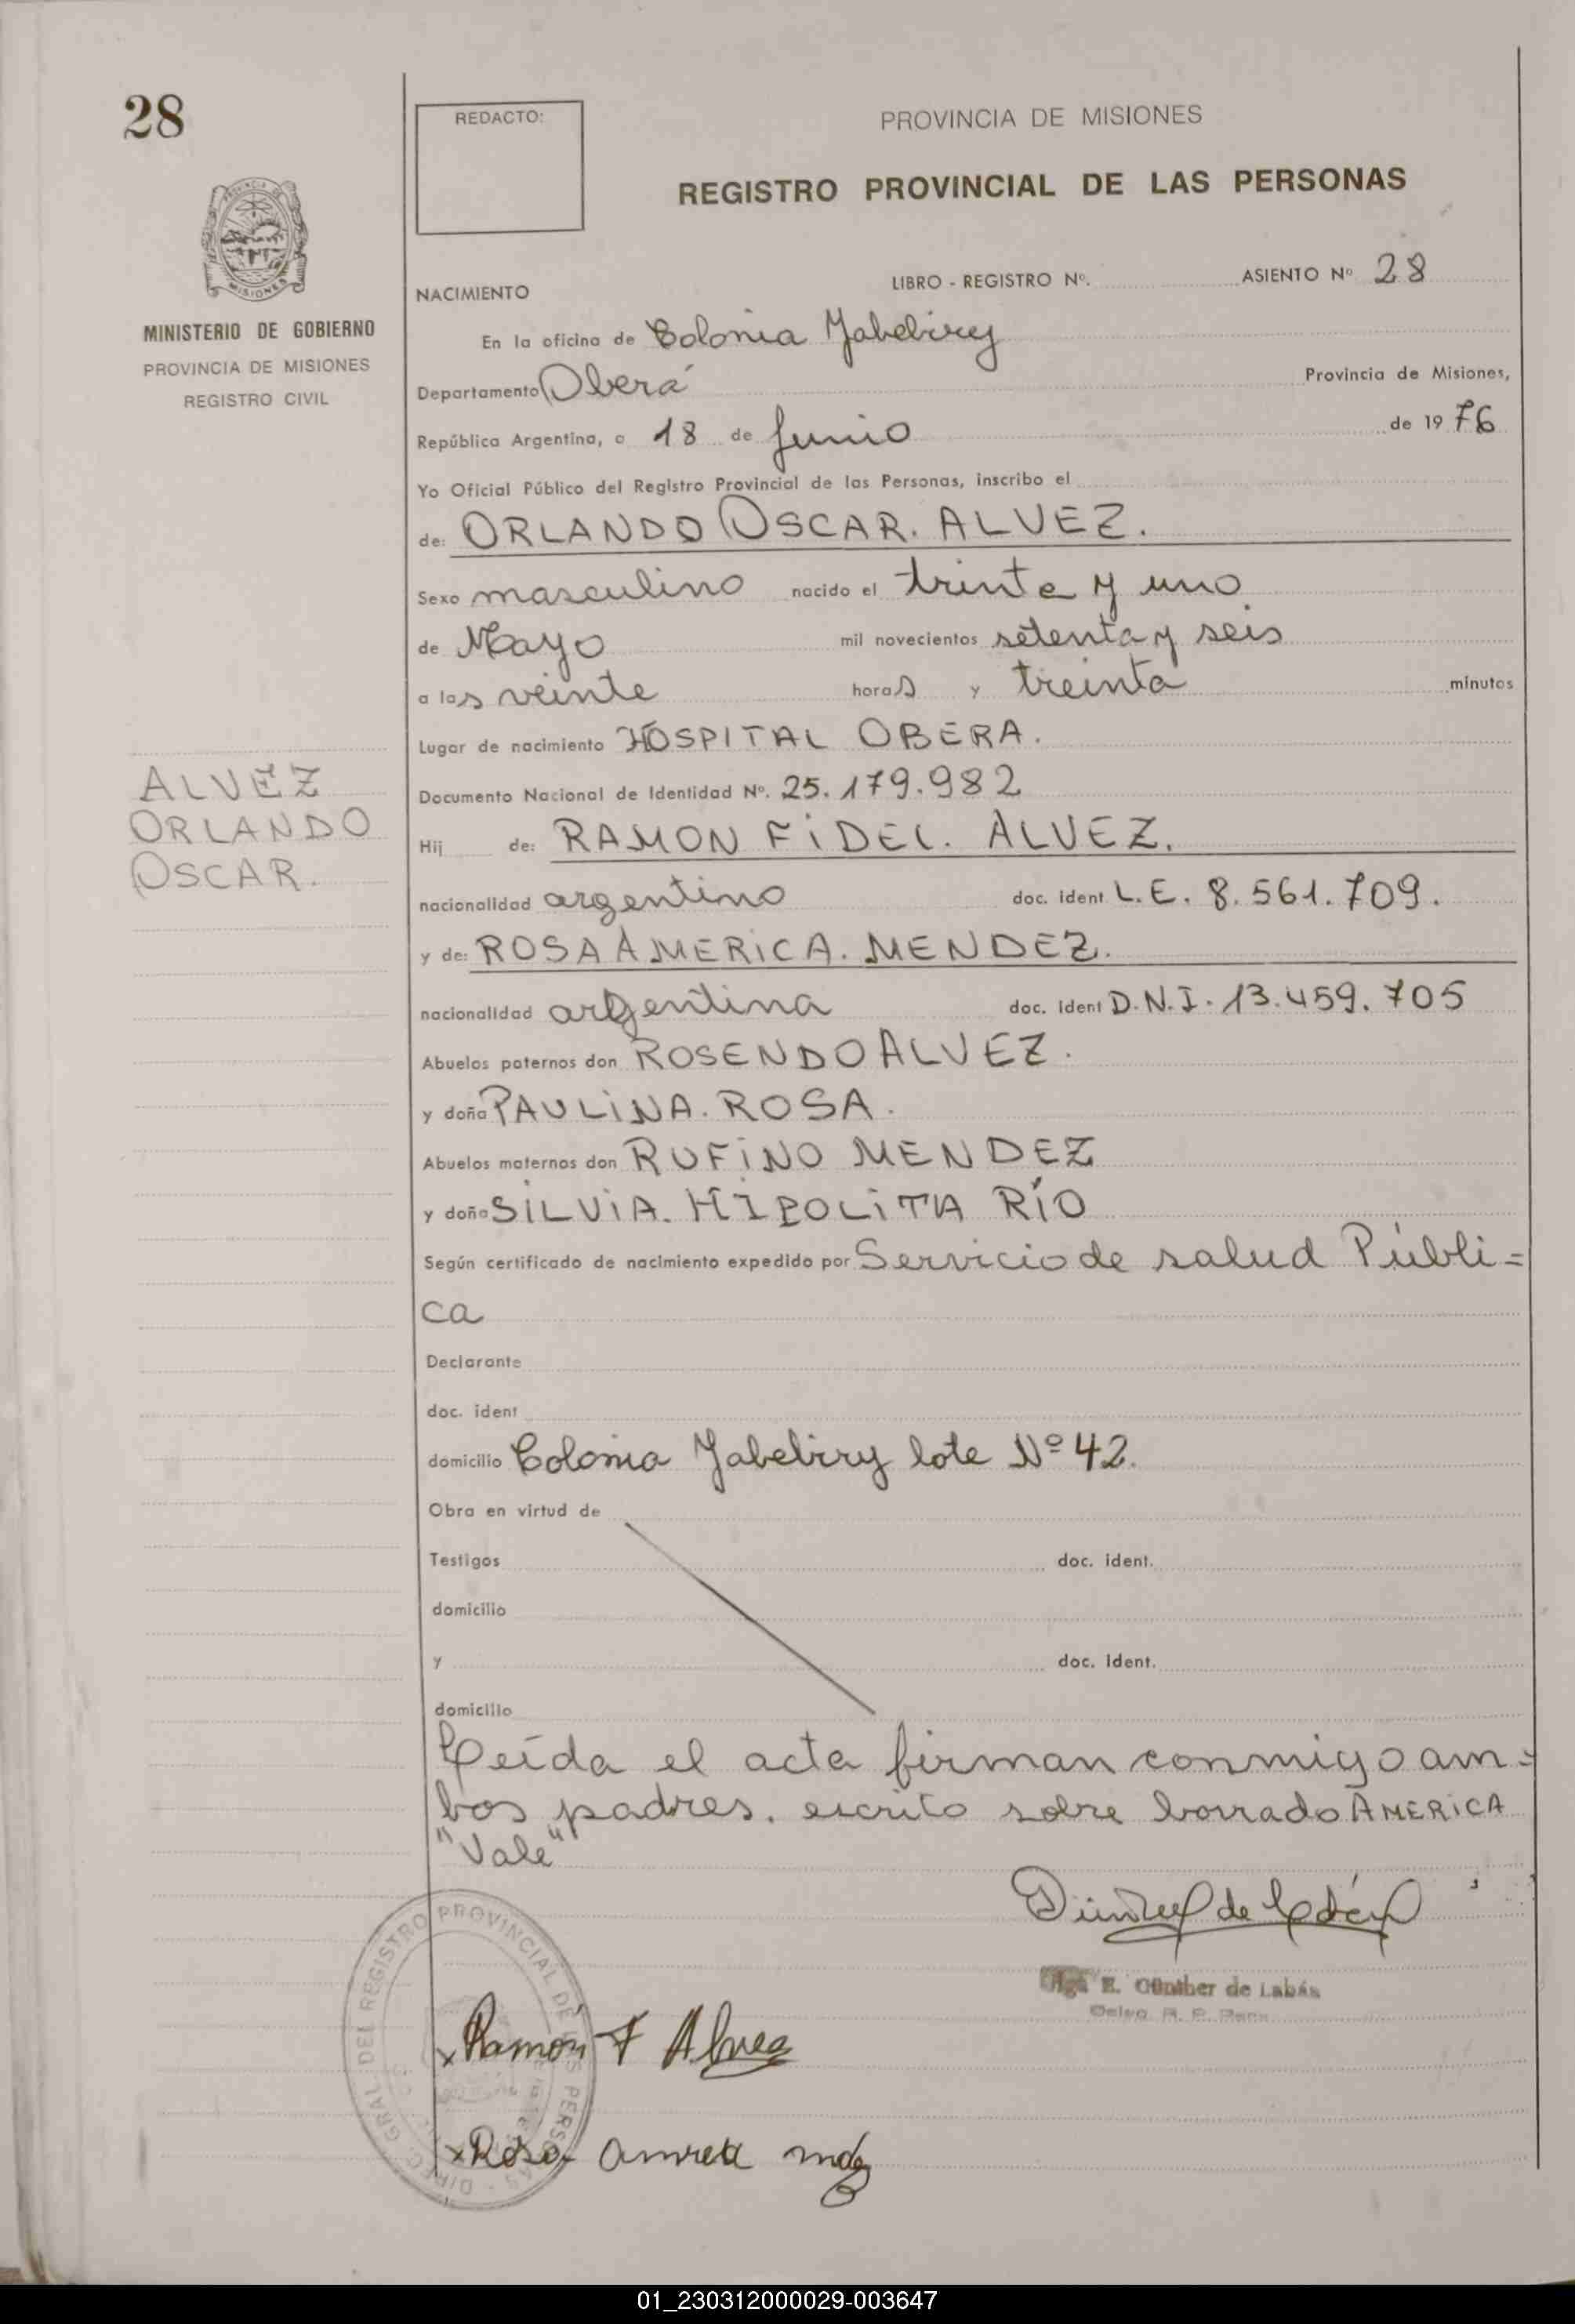 28
REDACTO:
PROVINCIA DE MISIONES
REGISTRO PROVINCIAL DE LAS PERSONAS
MISIONES
MINISTERIO DE GOBIERNO
PROVINCIA DE MISIONES
REGISTRO CIVIL
NACIMIENTO LIBRO - REGISTRO Nº. ASIENTO Nº 28
En la oficina de Colonia Yabebiry
Departamento Oberá Provincia de Misiones,
República Argentina, a 18 de Junio de 1976
Yo Oficial Público del Registro Provincial de las Personas, inscribo el
de: ORLANDO OSCAR. ALVEZ.
Sexo masculino nacido el trinta y uno
de Mayo mil novecientos setenta y seis
a las veinte horas y treinta minutos
Lugar de nacimiento HOSPITAL OBERA.
ALVEZ
ORLANDO
OSCAR.
Documento Nacional de Identidad Nº. 25.179.982
Hij de: RAMON FIDEL. ALVEZ.
nacionalidad argentino doc. ident L.E. 8.561.709.
y de: ROSA AMERICA. MENDEZ.
nacionalidad argentina doc. ident D.N.I. 13.459.705
Abuelos paternos don ROSENDO ALVEZ.
y doña PAULINA. ROSA.
Abuelos maternos don RUFINO MENDEZ
y doña SILVIA. HIPOLITA RÍO
Según certificado de nacimiento expedido por Servicio de salud Públi=
ca
Declarante
doc. ident
domicilio Colonia Yabebiry lote Nº 42.
Obra en virtud de
Testigos doc. ident.
domicilio
y doc. ident.
domicilio
Leída el acta firman conmigo am=
bos padres. escrito sobre borrado AMERICA
"Vale"
E. Günther de Labás
DIREC. GRAL. DEL REGISTRO PROVINCIAL DE LAS PERSONAS
x Ramon F Alvez
x Rosa
01_230312000029-003647